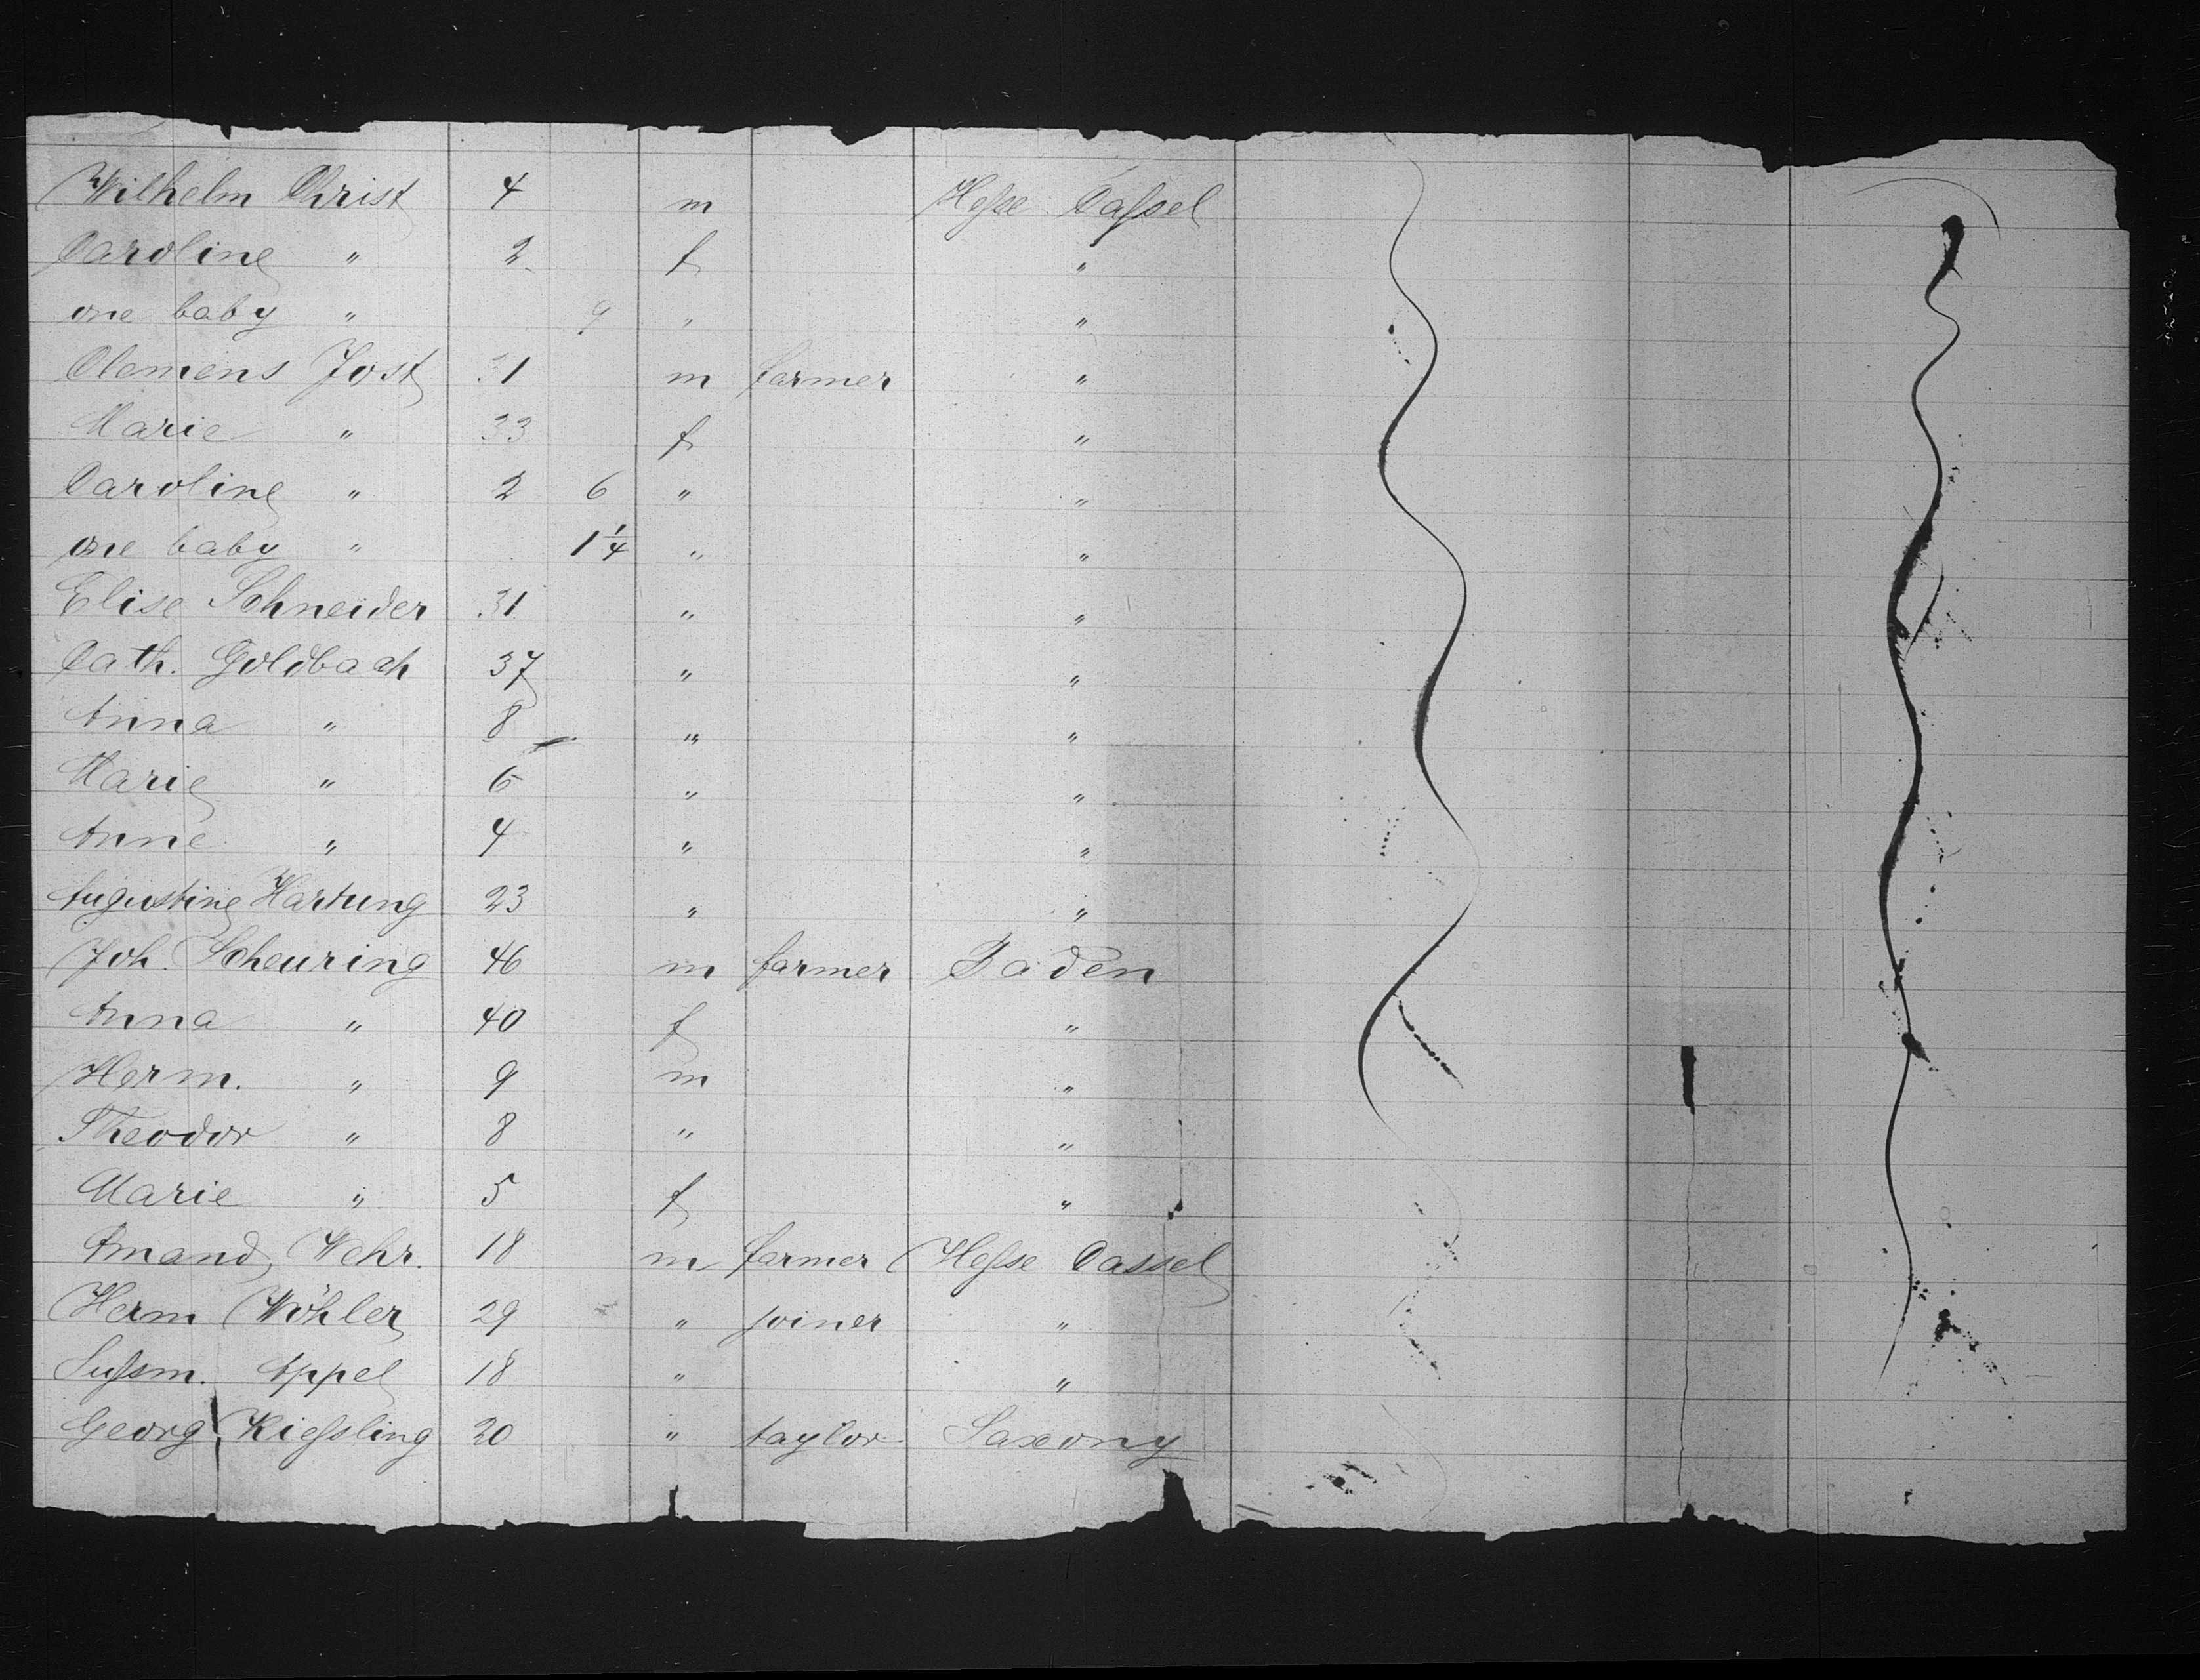 Wilhelm Christ 4 m Hesse Cassel
Caroline " 2 f "
one baby " 9 " "
Clemens Jost 31 m farmer "
Marie " 33 f "
Caroline " 2 6 " "
one baby " 1 1/4 " "
Elise Schneider 31 " "
Cath. Goldbach 37 " "
Anna " 8 " "
Marie " 6 " "
Anne " 4 " "
Augustine Hartung 23 " "
Joh. Scheuring 46 m farmer Baden
Anna " 40 f "
Herm. " 9 m "
Theodor " 8 " "
Marie " 5 f "
Amand Wehr. 18 m farmer Hesse Cassel
Herm Wöhler 29 " joiner "
Sussm. Appel 18 " "
Georg Kiessling 20 " taylor Saxony